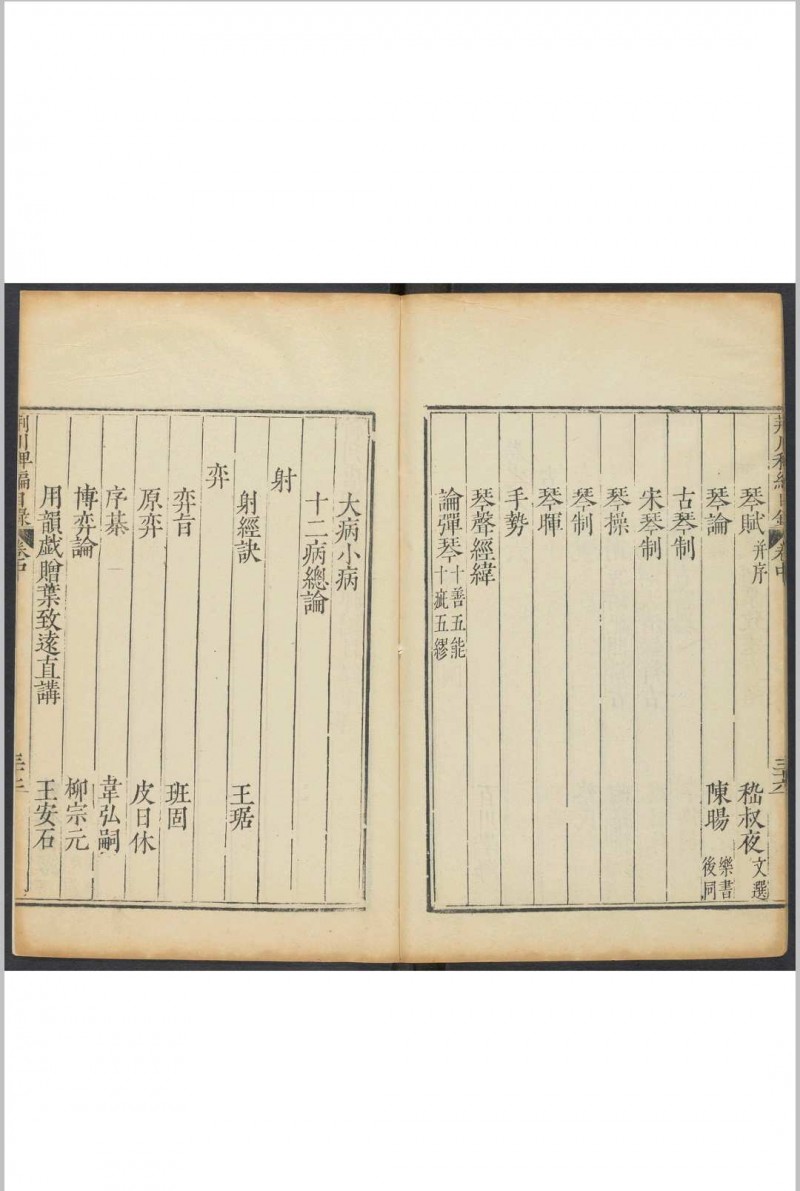 荆川稗編目錄 卷中 三十六
琴賦 并序 嵇叔夜 文選
琴論 陳暘 樂書 後同
古琴制
宋琴制
琴操
琴制
琴暉
手勢
琴聲經緯
論彈琴 十善五能 十疵五繆
大病小病
十二病總論
射
射經訣 王琚
弈
弈旨 班固
原弈 皮日休
序棊 柳宗元
博弈論 韋弘嗣
用韻戲贈葉致遠直講 王安石
荆川稗編目錄 卷中